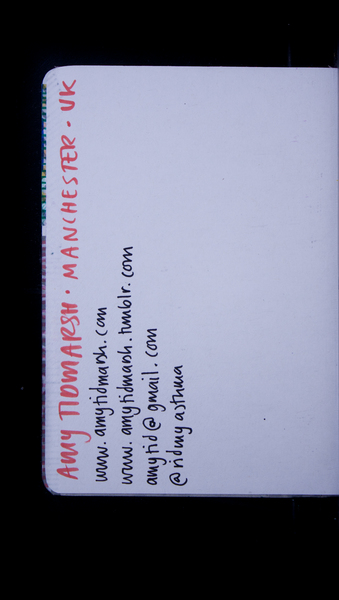 AMY TIDMARSH · MANCHESTER · UK
www.amytidmarsh.com
www.amytidmarsh.tumblr.com
amytid@gmail.com
@ridmyasthma